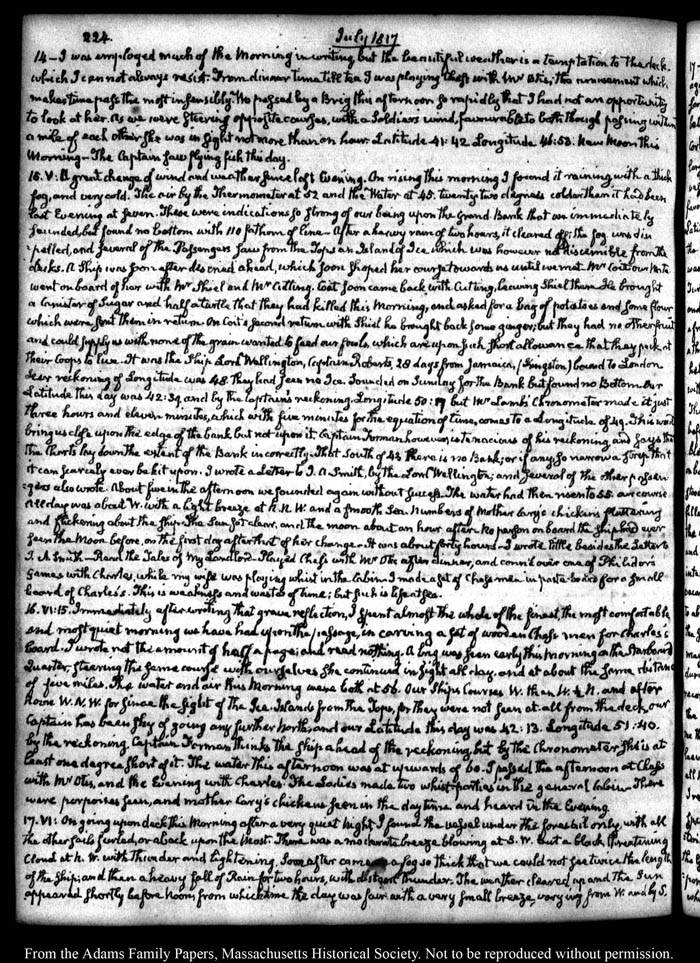 224.
July 1817
14 – I was employed much of the Morning in writing, but the beautiful weather is a temptation to the deck
which I cannot always resist. From dinner time till tea I was playing Chess with Mr Otis, the amusement which
makes time pass the most insensibly. We passed by a Brig this afternoon so rapidly that I had not an opportunity
to look at her. As we were steering opposite courses, with a Soldiers wind, favourable to both though passing within
a mile of each other she was in sight not more than an hour. Latitude 41:42. Longitude 46:53. New Moon this
Morning – The Captain saw flying fish this day.
15. V: A great change of wind and weather since last Evening. On rising this morning I found it raining, with a thick
fog, and very cold. The air by the Thermometer at 52 and the Water at 45. twenty two degrees colder than it had been
last Evening at seven. These were indications so strong of our being upon the Grand Bank that we immediately
sounded, but found no bottom with 110 fathom of line – After a heavy rain of two hours, it cleared off; the fog was dis-
:pelled, and several of the Passengers saw from the Tops an Island of Ice, which was however not discernible from the
decks. A Ship was soon after descried ahead, which soon shaped her course towards us until we met. Mr Coit our Mate
went on board of her with Mr Shiel and Mr Cutting. Coit soon came back with Cutting, leaving Shiel there. He brought
a canister of Sugar and half a turtle that they had killed this Morning, and asked for a Bag of potatoes and some flour
which were sent them in return. On Coit's second return with Shiel he brought back some ginger; but they had no other fruit
and could supply us with none of the grain wanted to feed our fowls, which are upon such short allowance that they peck at
their Coops to live. It was the Ship Lord Wellington, Captain Roberts, 28 days from Jamaica, (Kingston) bound to London
Their reckoning of Longitude was 48. They had seen no Ice. Sounded on Sunday for the Bank but found no Bottom. Our
Latitude this day was 42:39. and by the Captain's reckoning Longitude 50: but Mr Lamb's Chronometer made it just
three hours and eleven minutes, which with five minutes for the equation of time, comes to a Longitude of 49. This would
bring us close upon the edge of the bank but not upon it. Captain Forman however, is tenacious of his reckoning, and says that
the Charts lay down the extent of the Bank incorrectly. That South of 43 there is no Bank; or if any so narrow a strip that
it can scarcely ever be hit upon. I wrote a Letter to J. A. Smith, by the Lord Wellington; and several of the other passen-
:gers also wrote. About five in the afternoon we sounded again without success. The water had then risen to 55. our course
all day was about W. with a light breeze at N.N.W. and a smooth Sea. Numbers of Mother Cary's chickens fluttering
and flickering about the ship. The Sun set clear, and the moon about an hour after. No person on board the Ship had ever
seen the Moon before, on the first day after that of her change – It was about forty hours – I wrote little besides the Letter to
J. A. Smith – Read the Tales of my Landlord. Played Chess with Mr Otis after dinner, and conn'd over one of Philidor's
Games with Charles, while my wife was playing whist in the Cabin. I made a set of Chess men in paste-board for a small
board of Charles's. This is weakness and waste of time; but such is life at sea.
16. VI:15. Immediately after writing that grave reflection, I spent almost the whole of the finest, the most comfortable
and most quiet morning we have had upon the passage, in carving a set of wooden Chess men for Charles's
board. I wrote not the amount of half a page; and read nothing. A brig was seen early this morning on the Starboard
Quarter, steering the same course with ourselves. She continued in sight all day. and at about the same distance
of five miles. The water and air this Morning were both at 56. Our Ship's Courses W. then W. & N. and after
Noon W.N.W. for since the sight of the Ice Islands from the Tops, for they were not seen at all from the deck, our
Captain has been shy of going any further North; and our Latitude this day was 42:13. Longitude 51:40.
by the reckoning. Captain Forman thinks the ship ahead of the reckoning, but by the Chronometer she is at
least one degree short of it. The water this afternoon was at upwards of 60. I passed the afternoon at Chess
with Mr Otis, and the Evening with Charles. The Ladies made two whist-parties in the general Cabin – There
were porpoises seen, and mother Cary's chickens seen in the day time and heard in the Evening
17. VI: On going upon deck this Morning after a very quiet Night I found the vessel under the foresail only, with all
the other sails furled, or aback upon the Mast. There was a moderate breeze blowing at S.W. but a black threatening
Cloud at N.W. with Thunder and Lightening. Soon after came a fog so thick that we could not see twice the length
of the ship; and then a heavy fall of Rain for two hours, with distant thunder. The weather cleared up and the Sun
appeared shortly before Noon, from which time the day was fair with a very small breeze, varying from W. and by S.
From the Adams Family Papers, Massachusetts Historical Society. Not to be reproduced without permission.